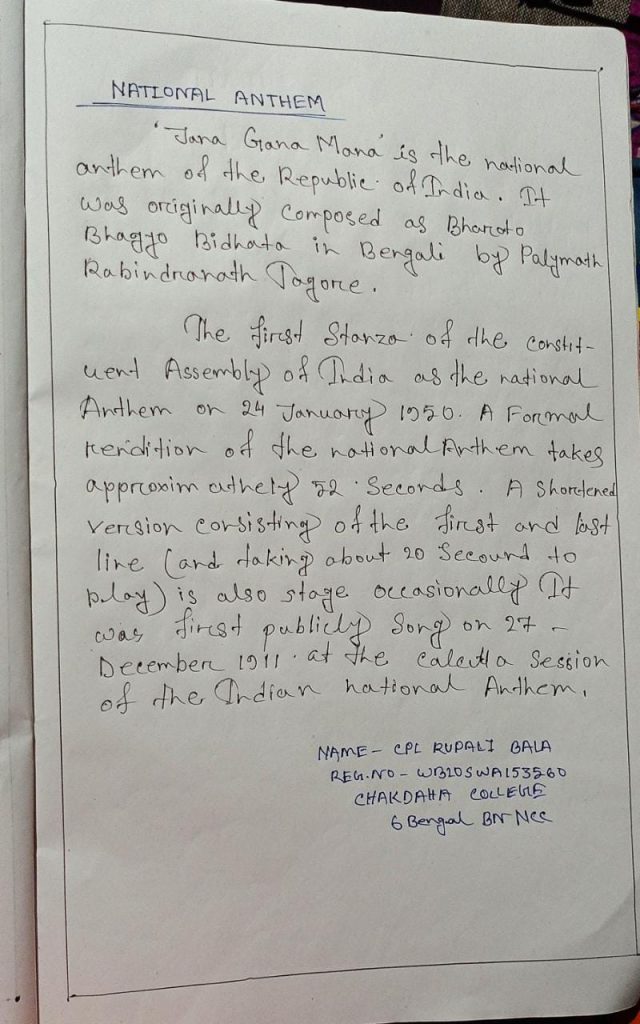 NATIONAL ANTHEM
'Jana Gana Mana' is the national
anthem of the Republic of India. It
was originally composed as Bharoto
Bhagyo Bidhata in Bengali by Palymath
Rabindranath Tagore.
The first Stanza of the constit-
uent Assembly of India as the national
Anthem on 24 January 1950. A Formal
rendition of the national Anthem takes
approxim athely 52 Seconds. A Shortened
version consisting of the first and last
line (and taking about 20 Secound to
play) is also stage occasionally It
was first publicly Song on 27 -
December 1911 at the calcutta Session
of the Indian national Anthem.
NAME - CPL RUPALI BALA
REG.NO - WB20SWA153560
CHAKDAHA COLLEGE
6 Bengal BN NCC